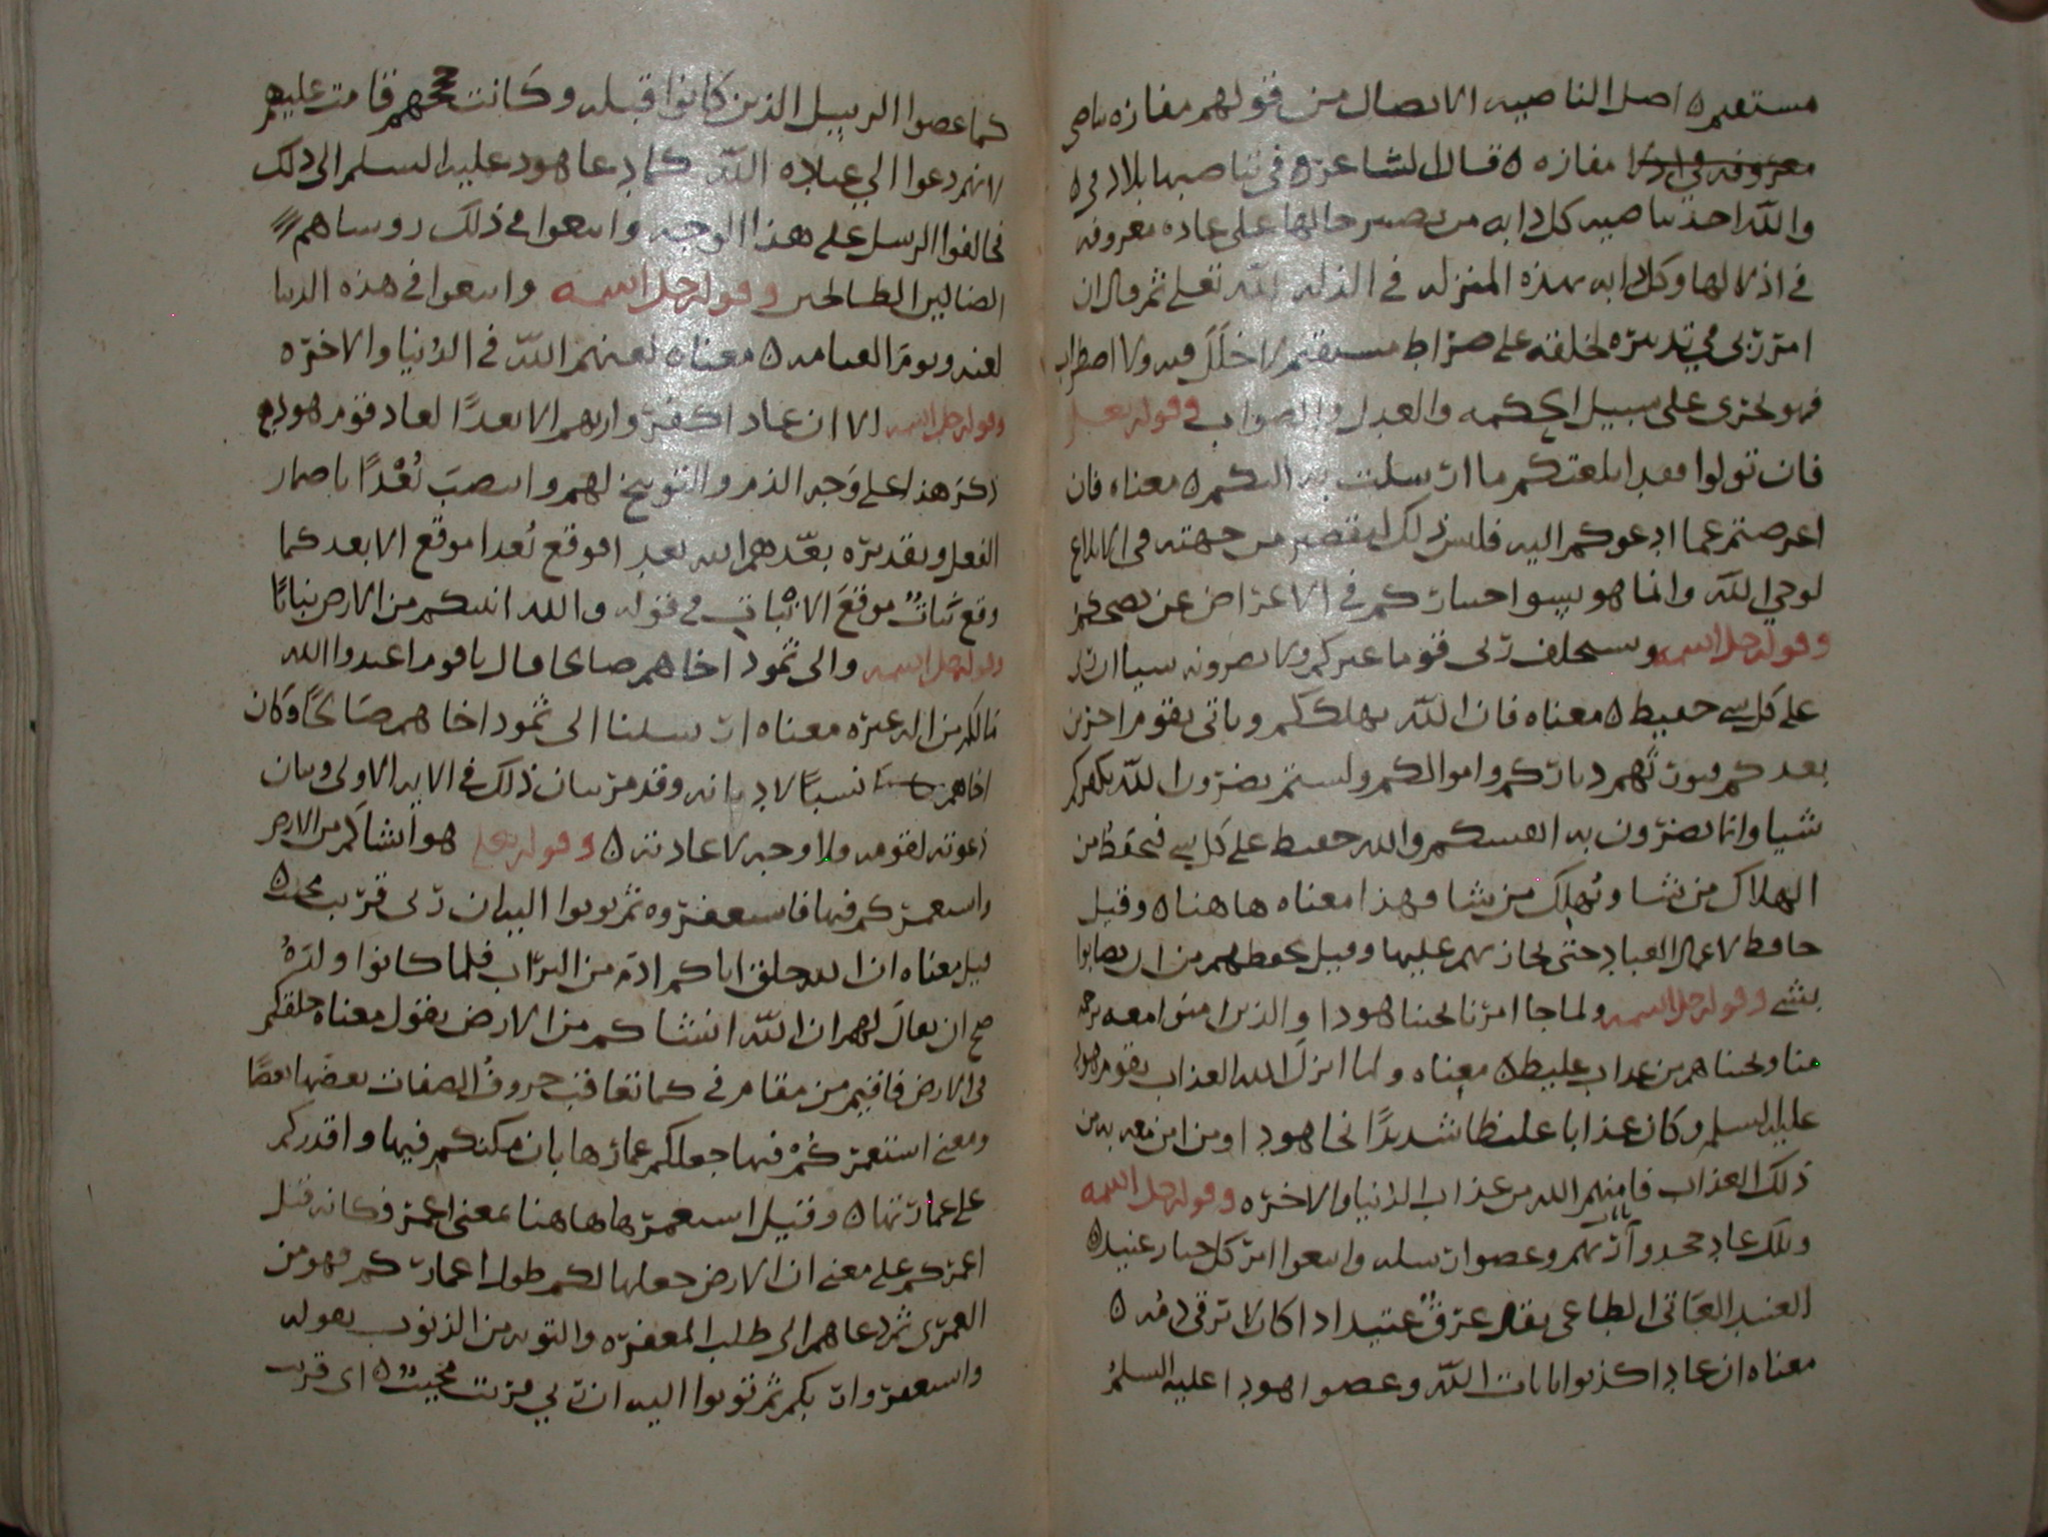 مستقيم ه اصل الناصيه الاتصال من قولهم مفازه تناصي
مفازه ه قال الشاعر ه في تناصيها بلاد في ه
والله اخذ بناصيه كل دابه من تصير حالها على عاده معروفه
في اذلالها وكل دابه بهذه المنزله في الذله لله تعلى ثم قال ان
امر ربي في تدبيره لخلقه على صراط مستقيم لا خلل فيه ولا اضطراب
فهو يجري على سبيل الحكمه والعدل والصواب وقوله تعلى
فان تولوا فقد ابلغتكم ما ارسلت به اليكم ه معناه فان
اعرضتم عما ادعوكم اليه فليس ذلك لتقصير من جهتي في ابلاغ
لوحي الله وانما هو بسوا اختياركم في الاعراض عن نصحكم
وقوله جل اسمه ويستخلف ربي قوما غيركم ولا تضرونه شيا ان ربي
على كل شي حفيظ ه معناه فان الله يهلككم وياتي بقوم اخرين
بعدكم فيورثهم دياركم واموالكم ولستم تضرون الله بكفركم
شيا وانما تضرون به انفسكم والله حفيظ على كل شي فيحفظ من
الهلاك من يشا ويهلك من يشا وهذا معناه هاهنا ه وقيل
حافظ لاعمال العباد حتى يجازيهم عليها وقيل يحفظهم من ان يصابوا
بشي وقوله جل اسمه ولما جا امرنا نجينا هودا والذين امنوا معه برحمه
منا ونجيناهم من عذاب غليظ ه معناه ولما انزل الله العذاب بقوم هود
عليه السلم وكان عذابا غليظا شديدا نجا هودا ومن امن معه به من
ذلك العذاب فامنهم الله من عذاب الدنيا والاخره وقوله جل اسمه
وتلك عاد جحدوا بايات ربهم وعصوا رسله واتبعوا امر كل جبار عنيد ه
العنيد العاتي الطاغي يقال عرق عنيد اذا كان لا يرقى دمه ه
معناه ان عادا كذبوا بايات الله وعصوا هودا عليه السلم
كما عصوا الرسل الذين كانوا قبله وكانت حججهم قامت عليهم
لانهم دعوا الى عباده الله كما دعا هود عليه السلم الى ذلك
فخالفوا الرسل على هذا الوجه واتبعوا في ذلك روساهم
الضالين الطالحين وقوله جل اسمه واتبعوا في هذه الدنيا
لعنه ويوم القيامه ه معناه لعنهم الله في الدنيا والاخره
وقوله جل اسمه الا ان عادا كفروا ربهم الا بعدا لعاد قوم هود
ذكر هذا على وجه الذم والتوبيخ لهم وانتصب بعدا باضمار
الفعل وتقديره بعدهم الله بعدا فوقع بعدا موقع الابعد كما
وقع نبات موقع الانبات في قوله والله انبتكم من الارض نباتا
وقوله جل اسمه والى ثمود اخاهم صالحا قال ياقوم اعبدوا الله
مالكم من اله غيره معناه ارسلنا الى ثمود اخاهم صالحا وكان
اخاهم نسبا لا ديانه وقد مر بيان ذلك في الايه الاولى وبيان
دعوته لقومه ولا وجه لاعادته ه وقوله تعلى هو انشاكم من الارض
واستعمركم فيها فاستغفروه ثم توبوا اليه ان ربي قريب مجيب ه
قيل معناه ان الله خلق اباكم ادم من التراب فلما كانوا ولده
صح ان يقال لهم ان الله انشاكم من الارض يقول معناه خلقكم
في الارض فاقيم من مقام في كما تعاقب حروف الصفات بعضها بعضا
ومعنى استعمركم فيها جعلكم عمارها بان مكنكم فيها واقدركم
على عمارتها ه وقيل استعمرها هاهنا بمعنى اعمر فكانه قيل
اعمركم على معنى ان الارض جعلها لكم طول اعماركم فهو من
العمرى ثم دعاهم الى طلب المغفره والتوبه من الذنوب بقوله
واستغفروا ربكم ثم توبوا اليه ان ربي قريب مجيب ه اي قريب